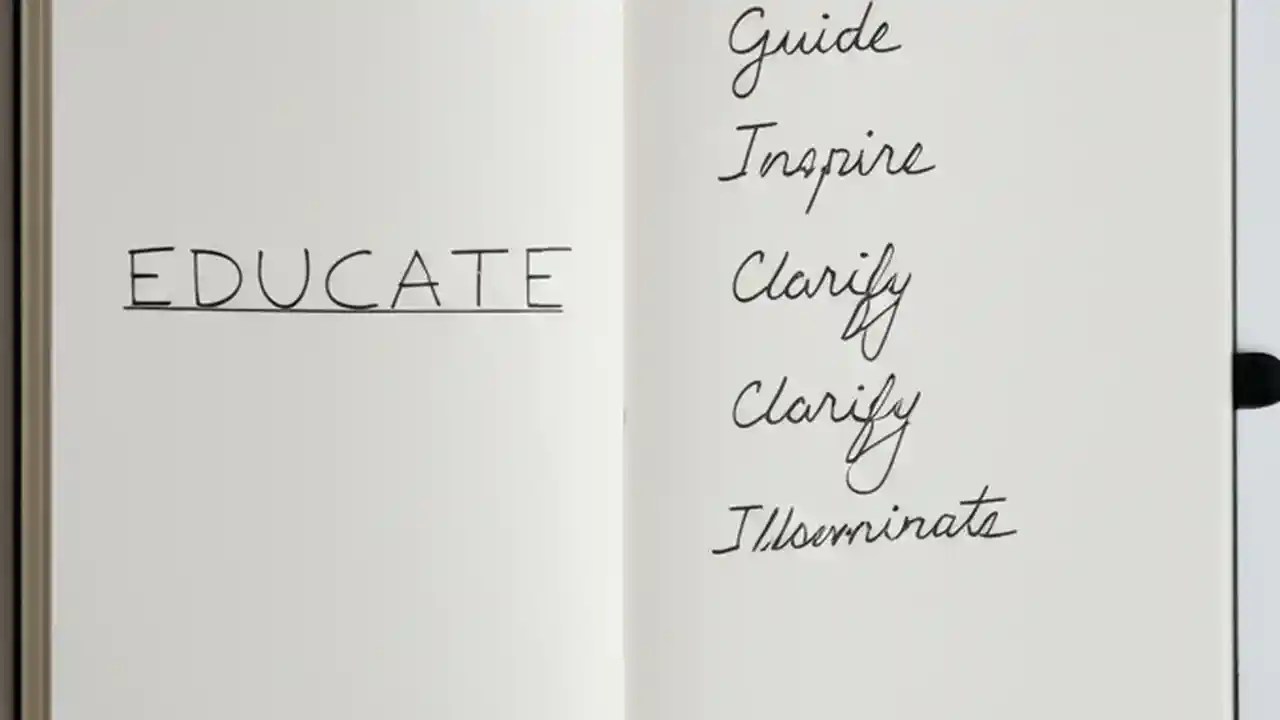 EDUCATE
Guide
Inspire
Clarify
Clarify
Illuminate